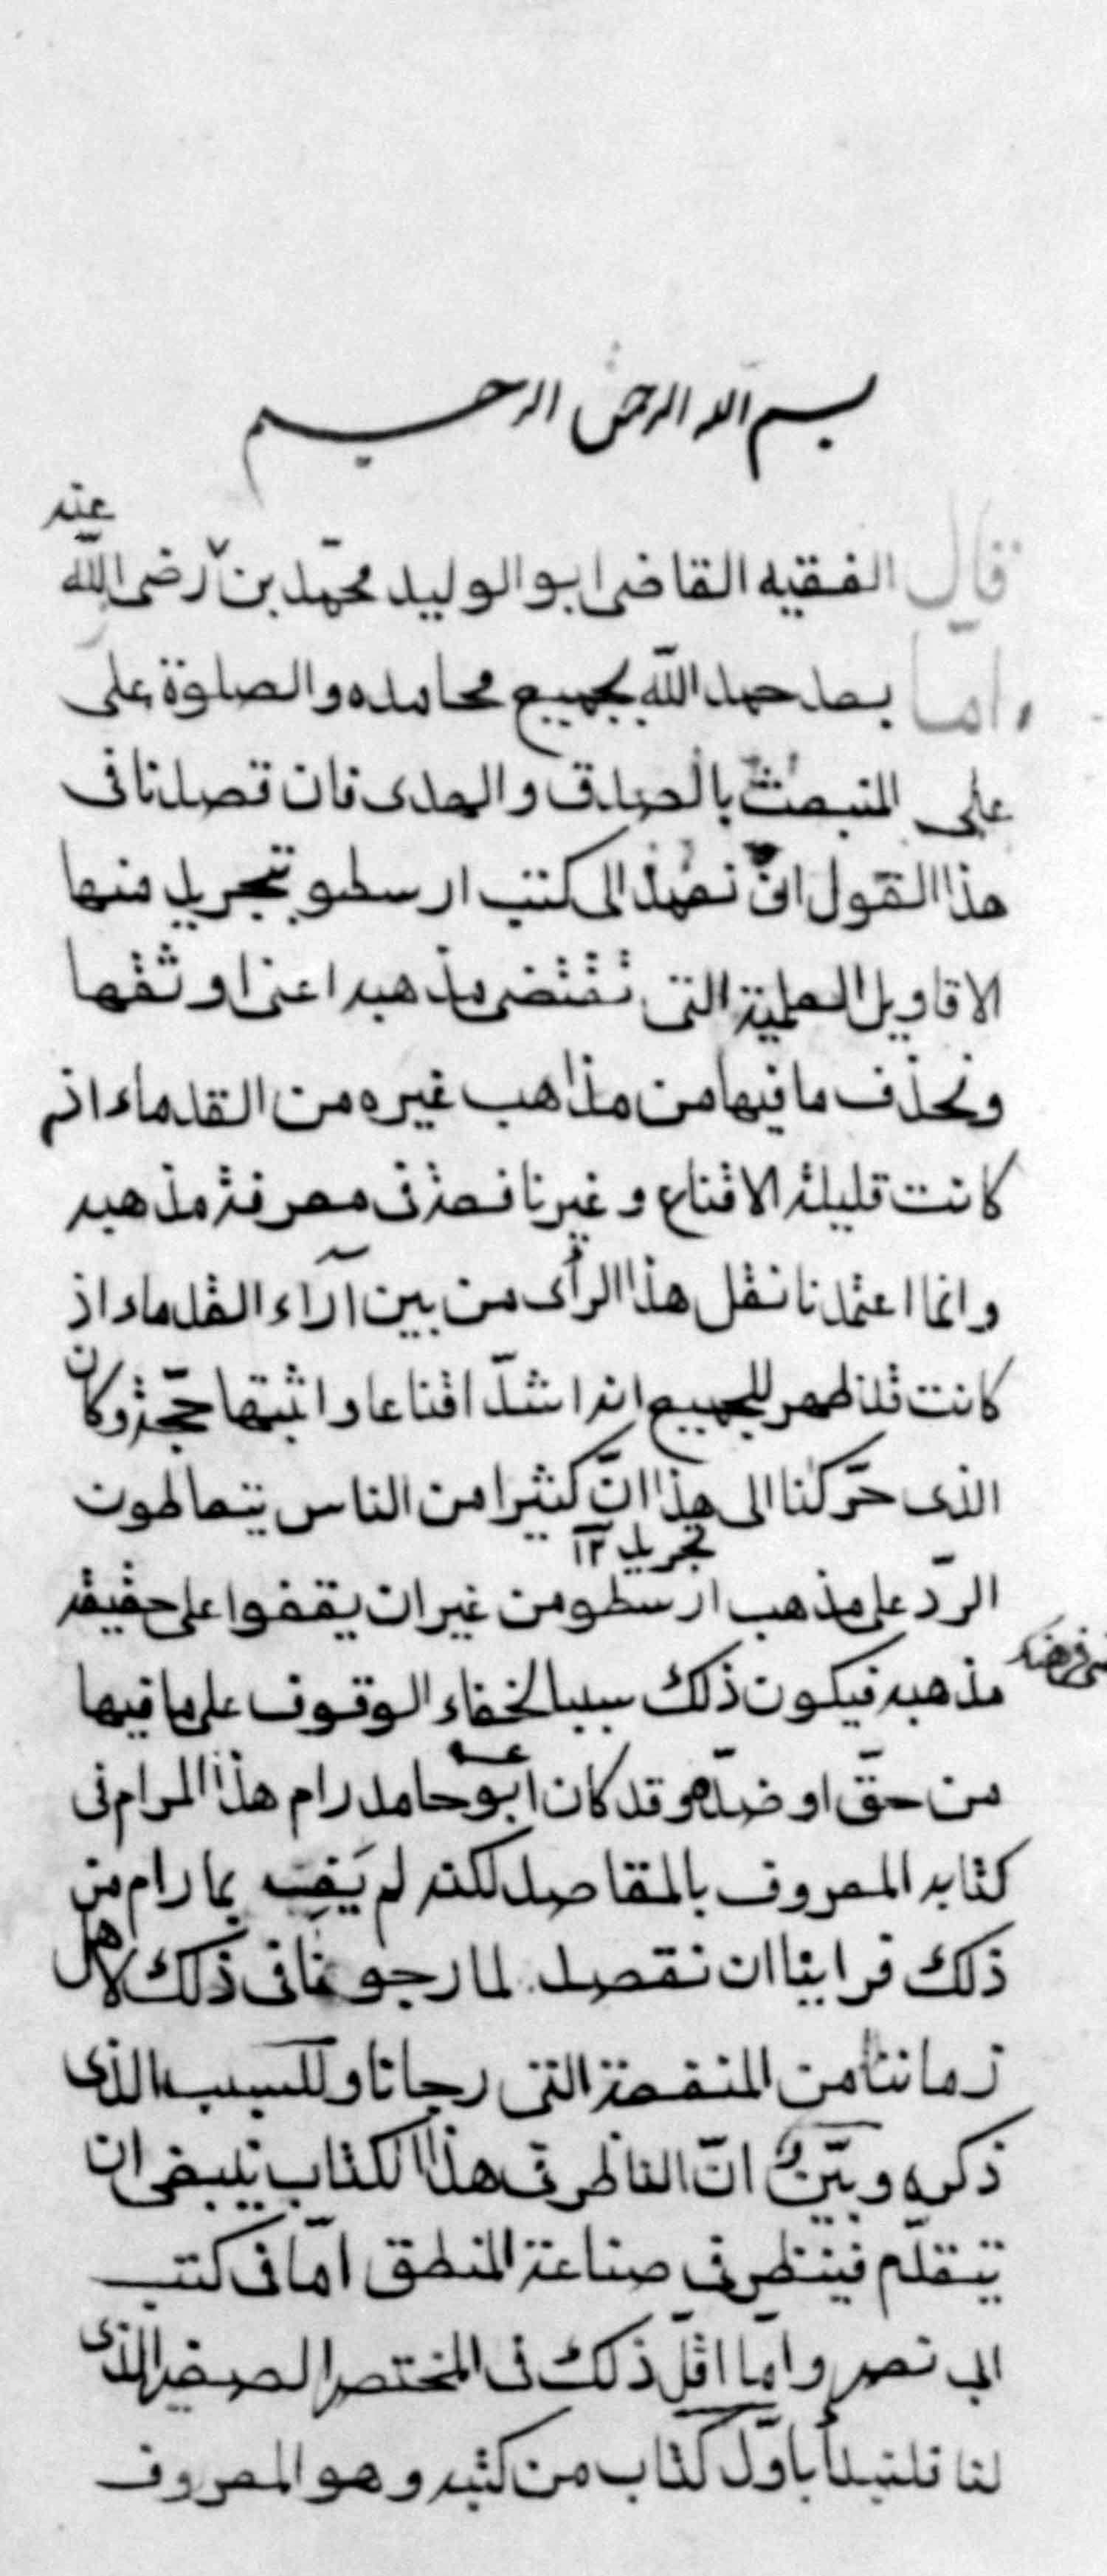 بسم الله الرحمن الرحيم
عنه
قال الفقيه القاضى ابو الوليد محمّد بن رضى اللّه
امّا بعد حمد اللّه بجميع محامده والصلوة على
على المنبعث بالصدق والهدى فان قصدنا فى
هذا القول ان نعمد الى كتب ارسطو بتجريد منها
الاقاويل العلمية التى تقتضى مذهبه اعنى اوثقها
ونحذف ما فيها من مذاهب غيره من القدماء اذ
كانت قليلة الاقناع وغير نافعة فى معرفة مذهبه
وانما اعتمدنا نقل هذا الرأى من بين آراء القدماء اذ
كانت قد ظهر للجميع انه اشدّ اقناعا واثبتها حجّة وكان
الذى حرّكنا الى هذا انّ كثيرا من الناس يتعاطون
تجريد ١٢
الردّ على مذهب ارسطو من غير ان يقفوا على حقيقة
مذهبه فيكون ذلك سببا لخفاء الوقوف على ما فيها
من حقّ او ضدّه وقد كان ابو حامد رام هذا المرام فى
كتابه المعروف بالمقاصد لكنه لم يَفِ بما رام من
ذلك فراينا ان نقصد لما رجوناه فى ذلك لاهل
زماننا من المنفعة التى رجانا وللسبب الذى
ذكره وبيّن انّ الناظر فى هذا الكتاب ينبغى ان
يتقدّم فينظر فى صناعة المنطق امّا فى كتب
ابى نصر وامّا اقلّ ذلك فى المختصر الصغير الذى
لنا فلنبدأ باوّل كتاب من كتبه وهو المعروف